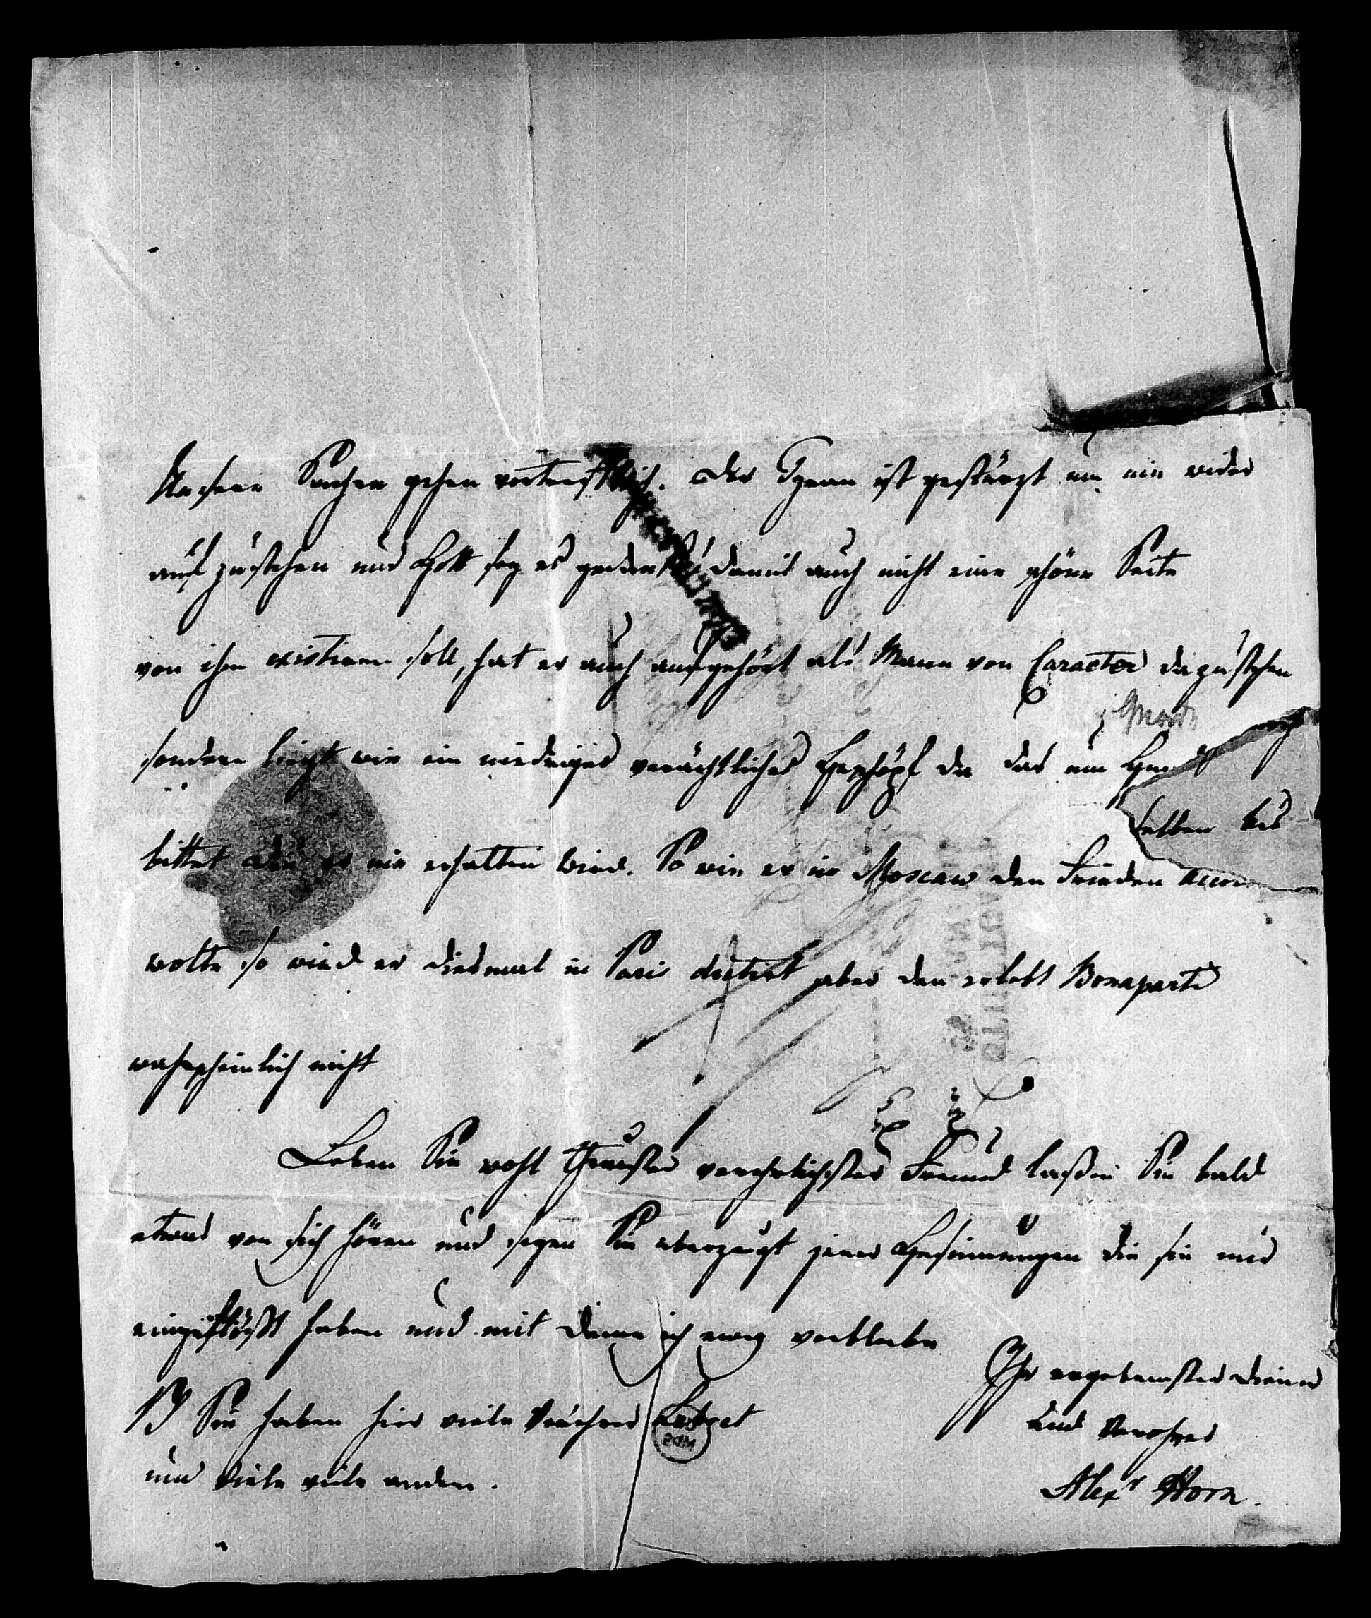 Unsere Sachen gehen vortrefflich. Der Tyran ist gestürzt um nie wieder
auf zustehen und Gott sey es gedankt! damit auch nicht eine schöne Seite
von ihm existiren soll, hat er auch aufgehört als Mann von Caracter dazustehen
sondern liegt wie ein niedriges verächtliches Geschöpf da das um
selben bis
bittet die er nie erhalten wird. So wie er in Moscau den Frieden
wolte so wird er diesmal in Paris dictirt aber den erlebt Bonaparte
wahrscheinlich nicht
Leben Sie wohl theurster verehrlichster Freund laßen Sie bald
etwas von sich hören und seyen Sie überzeugt jener Gesinnungen die sie mir
eingeflößt haben und mit denen ich ewig verbleibe
Ihr ergebenster Diener
und Verehrer
Alexr Horn.
Sie haben hier viele Verehrer
und viele viele andere.